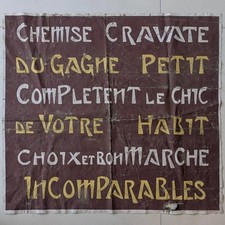 CHEMISE CRAVATE
DU-GAGNE PETIT
COMPLETENT LE CHIC
DE VOTRE HABIT
CHOIX ET BON MARCHE
INCOMPARABLES